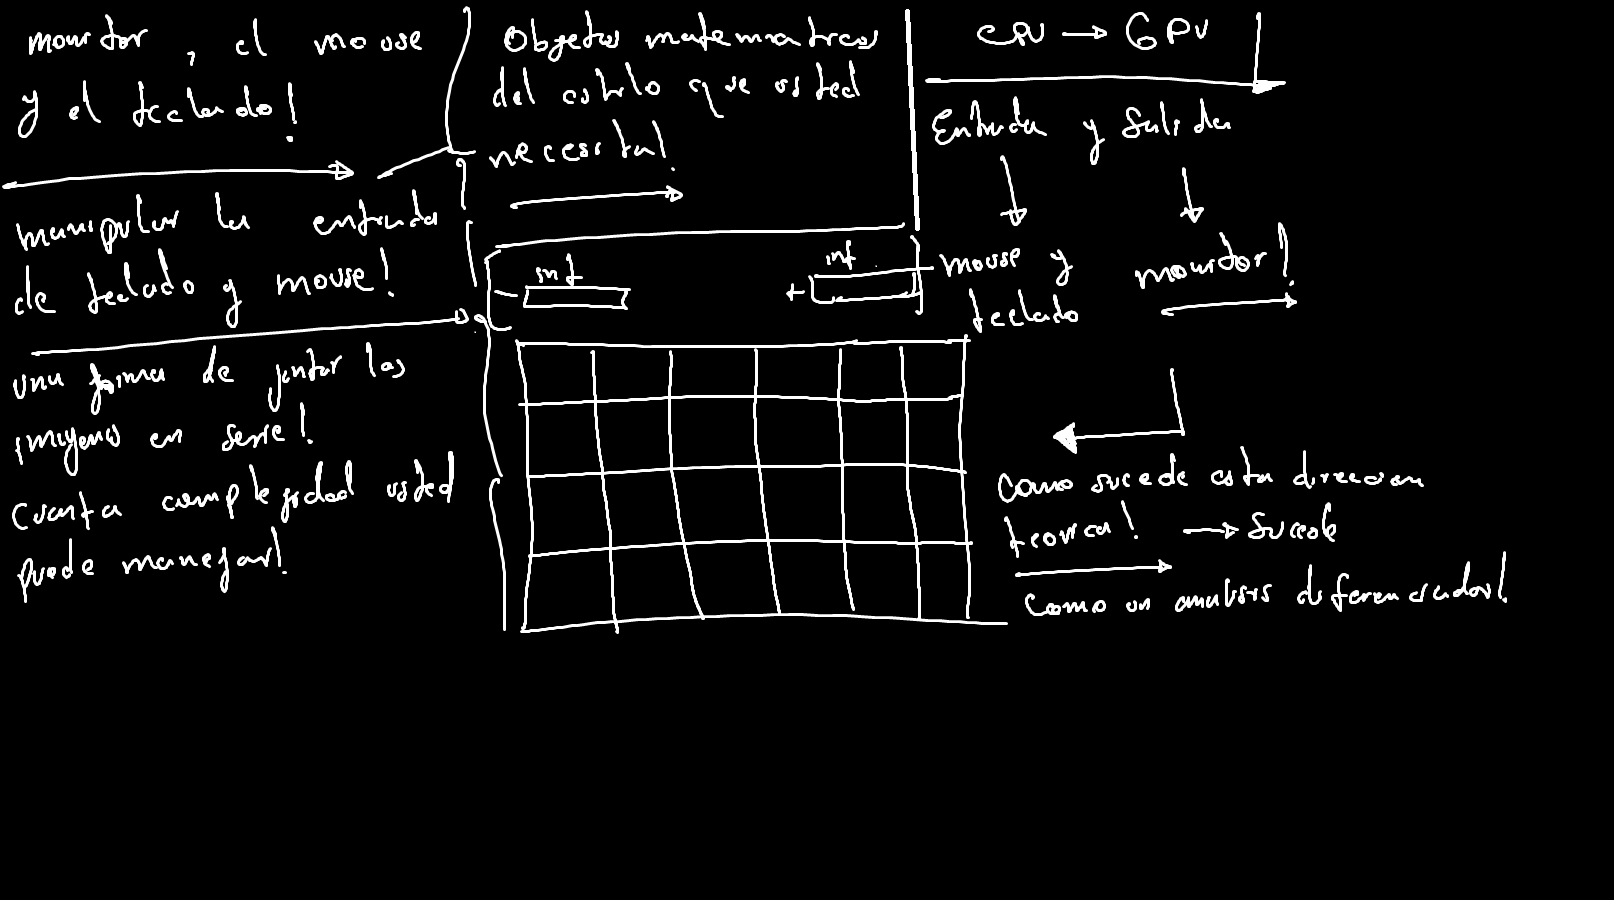 monitor, el mouse
y el teclado!
manipular la entrada
de teclado y mouse!
una forma de juntar las
imagenes en serie!
Cuanta complejidad usted
puede manejar!
Objetos matematicos
del estilo que usted
necesita!
- inf
+ inf
CPU → GPU
Entrada y Salida
mouse y
teclado
monitor!
Como sucede esta direccion
teorica! → Sucede
Como un analisis diferenciador!